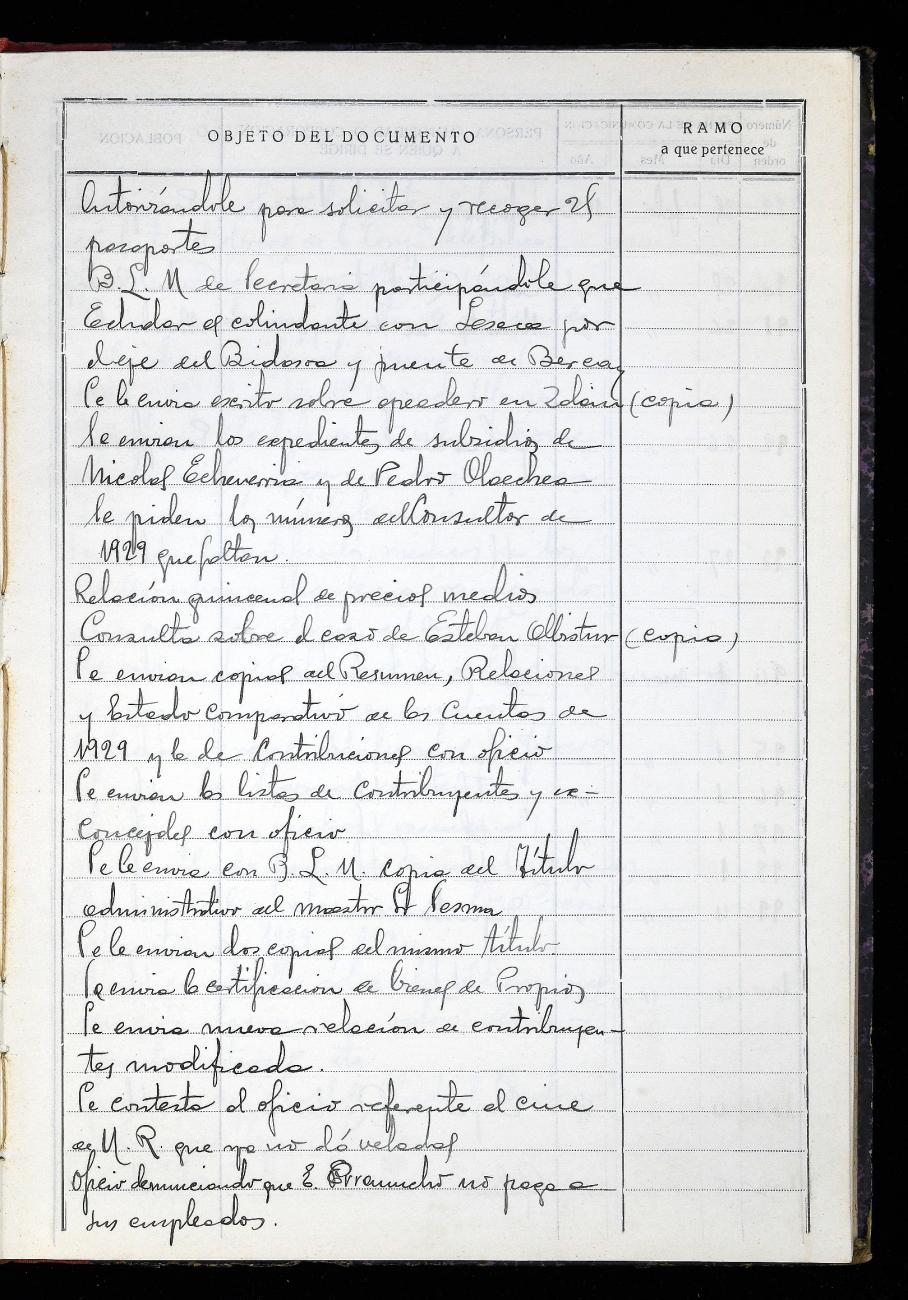 OBJETO DEL DOCUMENTO
RAMO
a que pertenece
Autorizándole para solicitar y recoger 25
pasaportes
B. L. M de Secretaria participándole que
Echalar es colindante con Lesaca por
el eje del Bidasoa y puente de Berea
Se le envia escrito sobre apeadero en Zalain (copia)
Se envian los expedientes de subsidios de
Nicolas Echeverria y de Pedro Olaechea
Se piden los números del Consultor de
1929 que faltan.
Relación quincenal de precios medios
Consulta sobre el caso de Esteban (copia)
Se envian copias del Resumen, Relaciones
y Estado Comparativo de las Cuentas de
1929 y la de Contribuciones con oficio
Se envian las listas de Contribuyentes y ex-
Concejales con oficio
Se le envia con B. L. M. copia del Título
administrativo del maestro Sr Lesma
Se le envian dos copias del mismo título.
Se envia la certificacion de bienes de Propios
Se envia nueva relación de contribuyen-
tes modificada.
Se contesta al oficio referente al cine
de M. R. que ya no dá veladas
Oficio denunciando que E. no paga a
sus empleados.